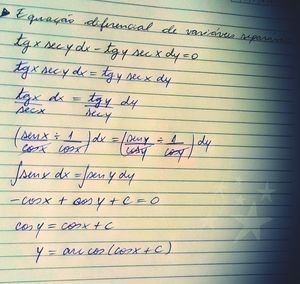 ▸ Equação diferencial de variáveis
tg x sec y dx - tg y sec x dy = 0
tg x sec y dx = tg y sec x dy
tg x/sec x dx = tg y/sec y dy
(sen x/cos x ÷ 1/cos x) dx = (sen y/cos y ÷ 1/cos y) dy
∫sen x dx = ∫sen y dy
-cos x + cos y + c = 0
cos y = cos x + c
y = arc cos (cos x + c)